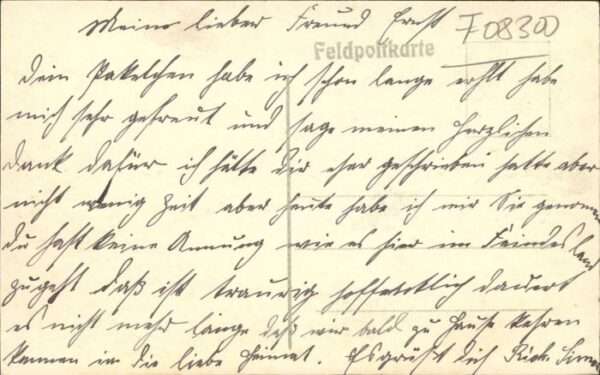 Meine lieber Freund Ernst
F08300
Feldpostkarte
Dein Paketchen habe ich schon lange erhlt habe
mich sehr gefreut und sage meinen herzlichen
Dank dafür ich hätte dir eher geschrieben hatte aber
nicht wenig Zeit aber heute habe ich mir Sie genomen
du hast keine Annung wie es hier im Feindesland
zugeht daß ist traurig hoffentlich dauert
es nicht mehr lange daß wir bald zu Hause kehren
kennen in die liebe Heimat. Es grüßt dich Rich.